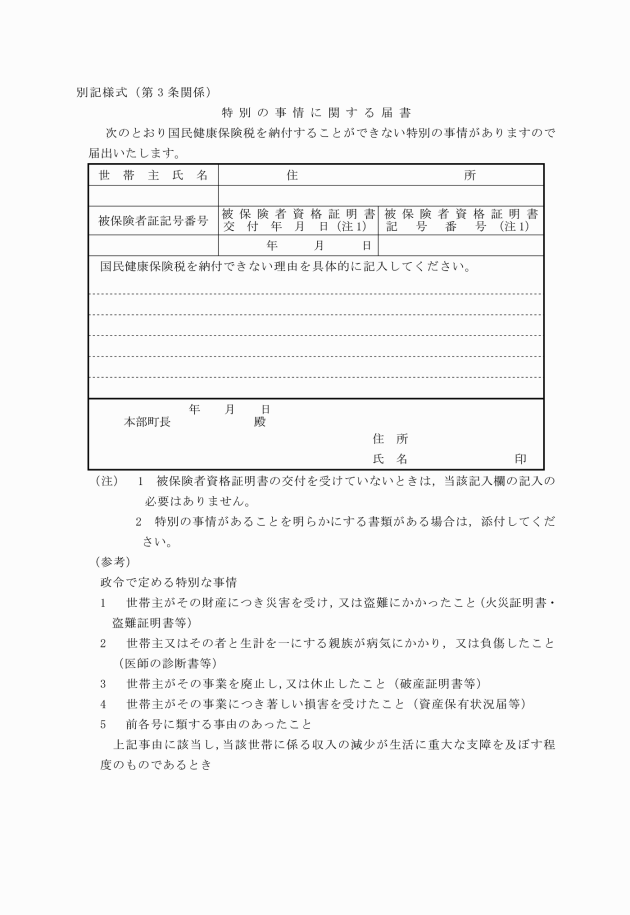 別記様式（第３条関係）
特別の事情に関する届書
次のとおり国民健康保険税を納付することができない特別の事情がありますので
届出いたします。
世帯主氏名 住 所
被保険者証記号番号 被保険者資格証明書 被保険者資格証明書
交付年月日（注１） 記号番号（注１）
年 月 日
国民健康保険税を納付できない理由を具体的に記入してください。
年 月 日
本部町長 殿
住 所
氏 名 印
（注） １ 被保険者資格証明書の交付を受けていないときは，当該記入欄の記入の
必要はありません。
２ 特別の事情があることを明らかにする書類がある場合は，添付してくだ
さい。
（参考）
政令で定める特別な事情
１ 世帯主がその財産につき災害を受け，又は盗難にかかったこと（火災証明書・
盗難証明書等）
２ 世帯主又はその者と生計を一にする親族が病気にかかり，又は負傷したこと
（医師の診断書等）
３ 世帯主がその事業を廃止し，又は休止したこと（破産証明書等）
４ 世帯主がその事業につき著しい損害を受けたこと（資産保有状況届等）
５ 前各号に類する事由のあったこと
上記事由に該当し，当該世帯に係る収入の減少が生活に重大な支障を及ぼす程
度のものであるとき